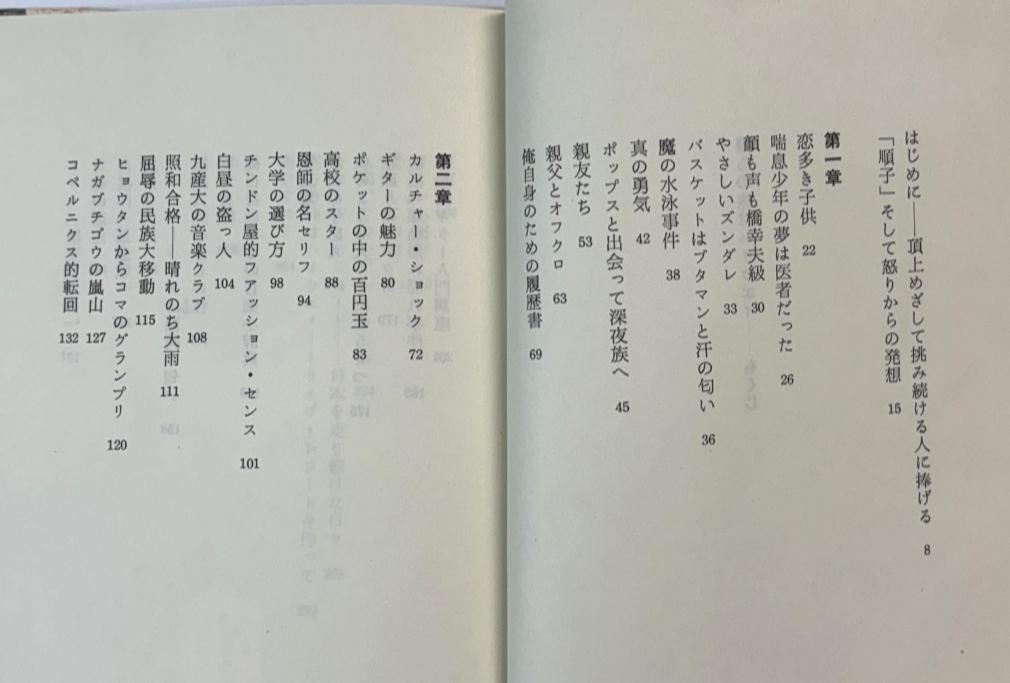 はじめに――頂上めざして挑み続ける人に捧げる 8
「順子」そして怒りからの発想 15
第一章
恋多き子供 22
喘息少年の夢は医者だった 26
顔も声も橋幸夫級 30
やさしいズンダレ 33
バスケットはブタマンと汗の匂い 36
魔の水泳事件 38
真の勇気 42
ポップスと出会って深夜族へ 45
親友たち 53
親父とオフクロ 63
俺自身のための履歴書 69
第二章
カルチャー・ショック 72
ギターの魅力 80
ポケットの中の百円玉 83
高校のスター 88
恩師の名セリフ 94
大学の選び方 98
チンドン屋的ファッション・センス 101
白昼の盗っ人 104
九産大の音楽クラブ 108
照和合格――晴れのち大雨 111
屈辱の民族大移動 115
ヒョウタンからコマのグランプリ 120
ナガブチゴウの嵐山 127
コペルニクス的転回 132